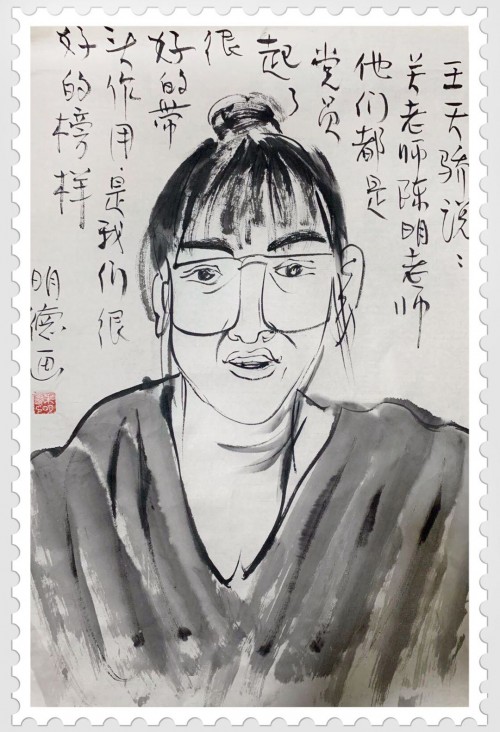 王天骄说：
关老师陈明老师
他们都是
党员
起了
很
好的带
头作用是我们很
好的榜样
明德画